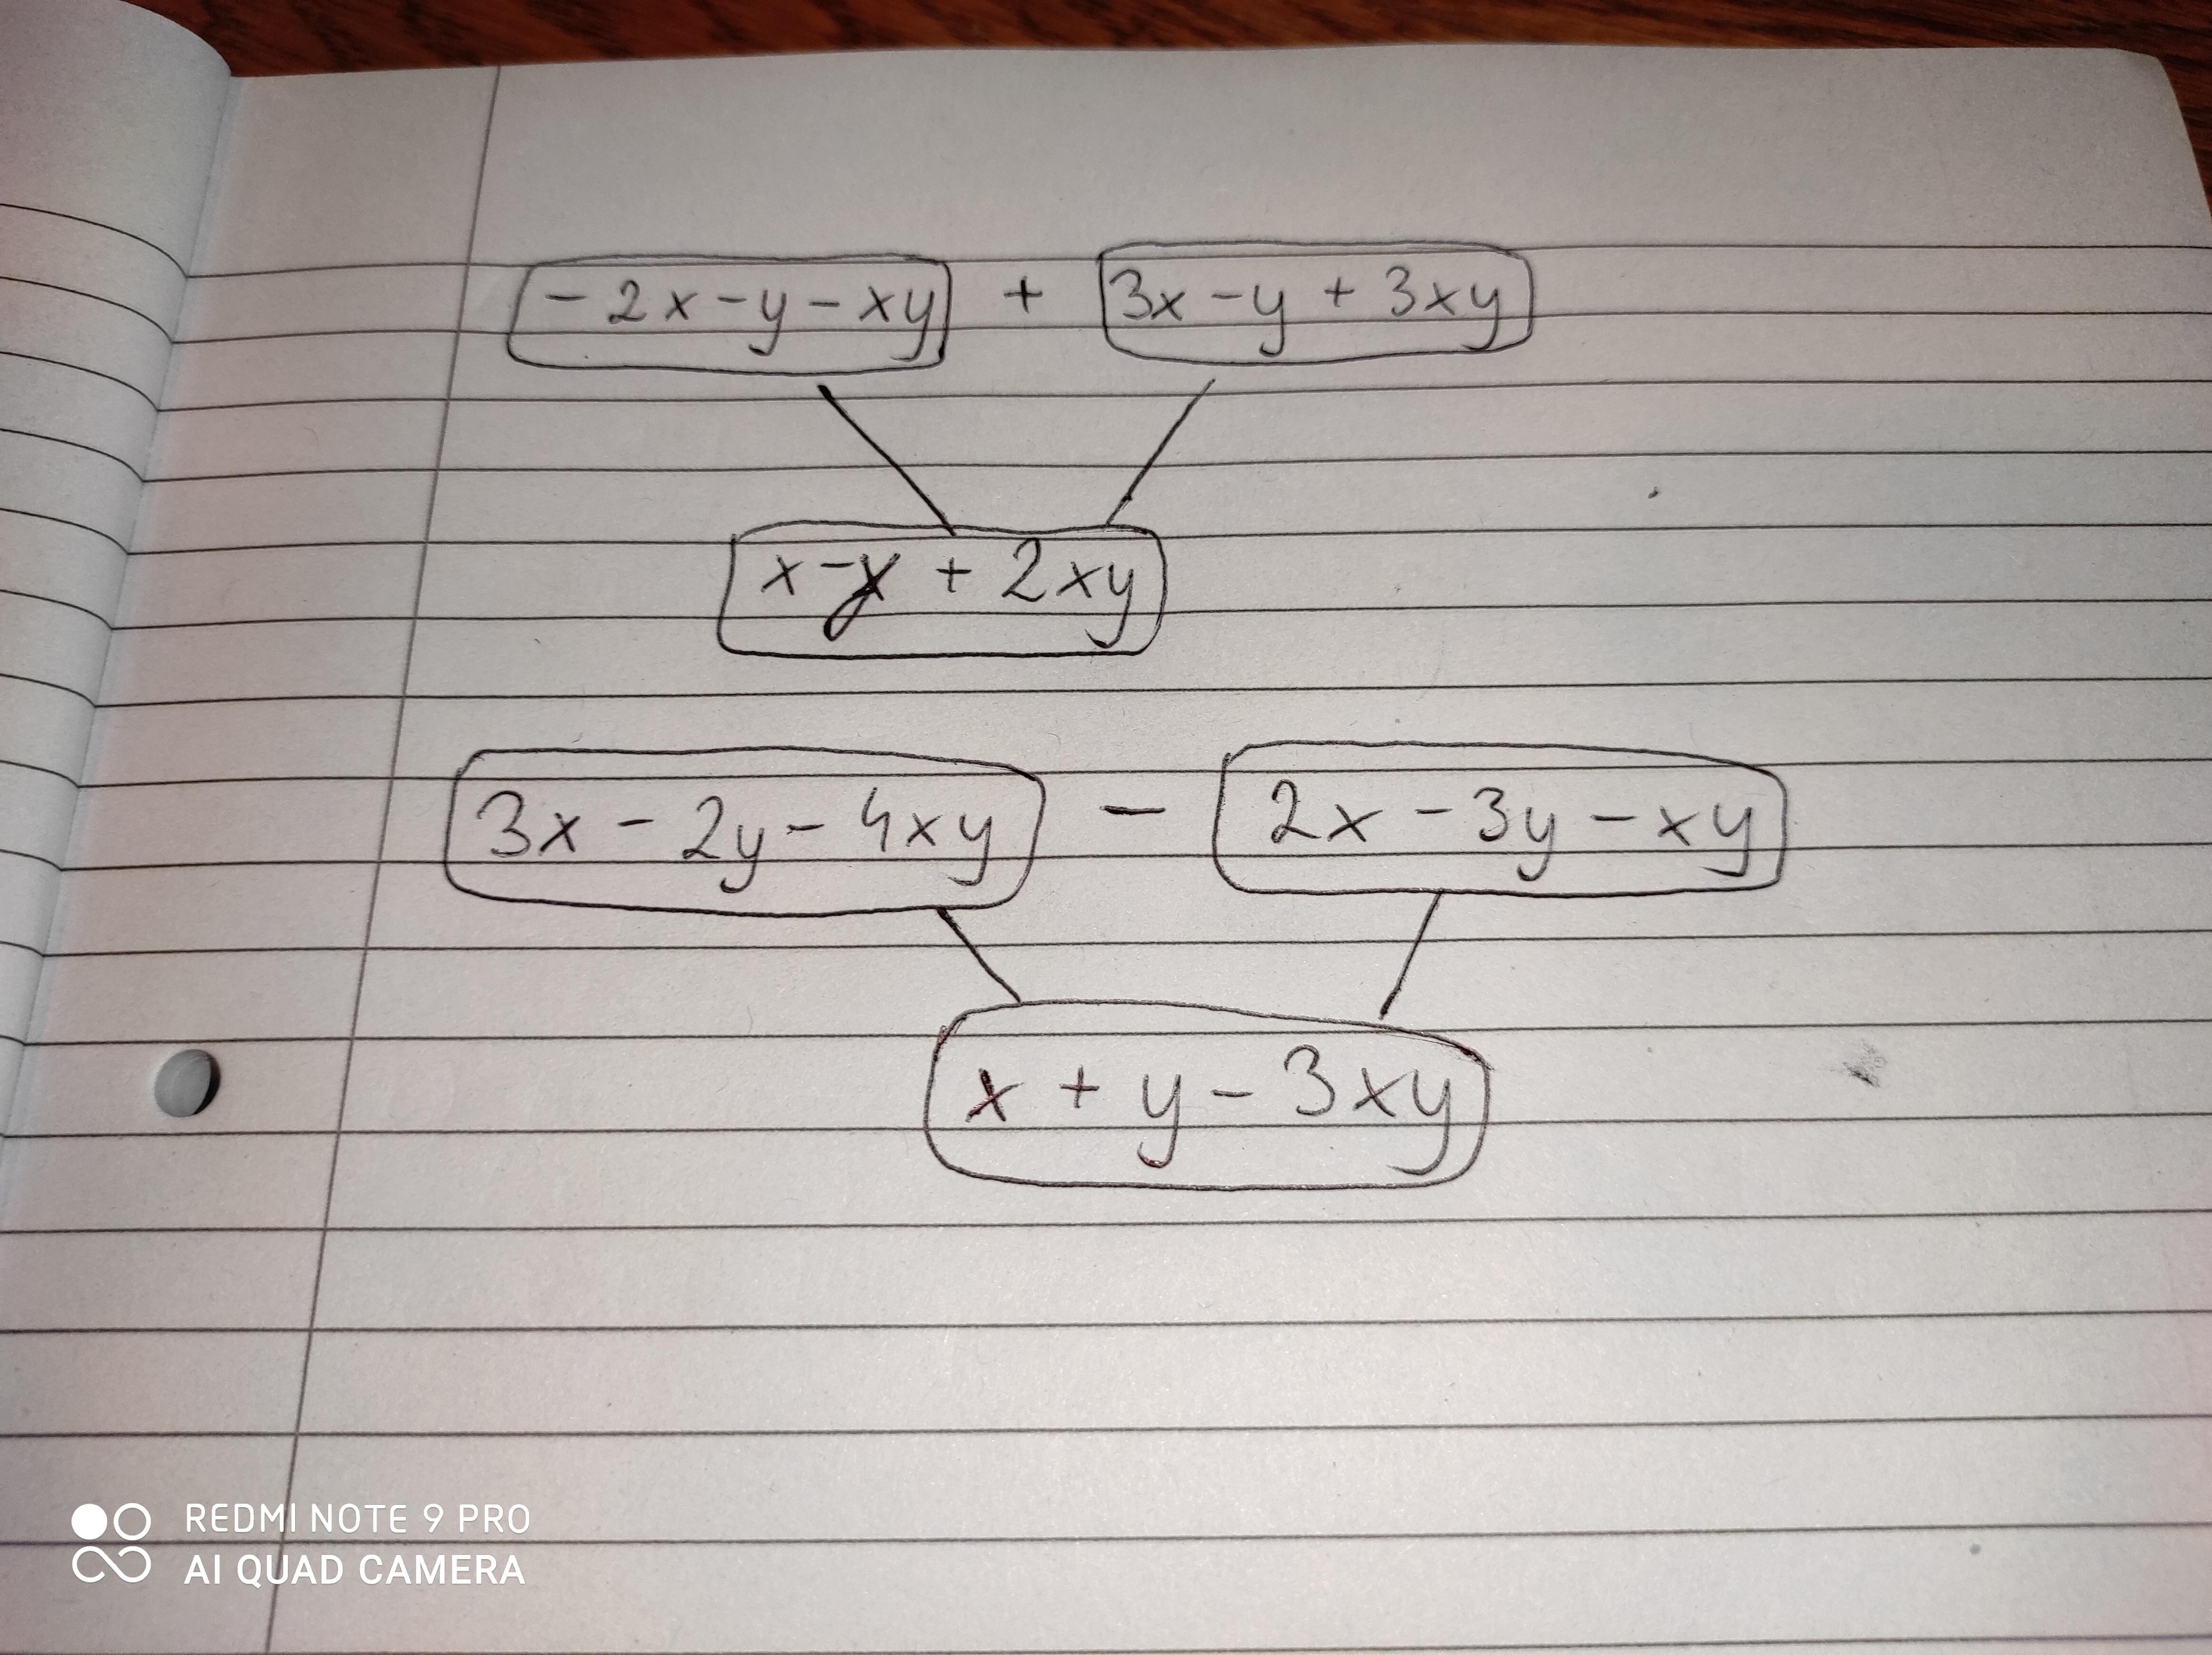 - 2x - y - xy + 3x - y + 3xy
x - y + 2xy
3x - 2y - 4xy - 2x - 3y - xy
x + y - 3xy
REDMI NOTE 9 PRO
AI QUAD CAMERA